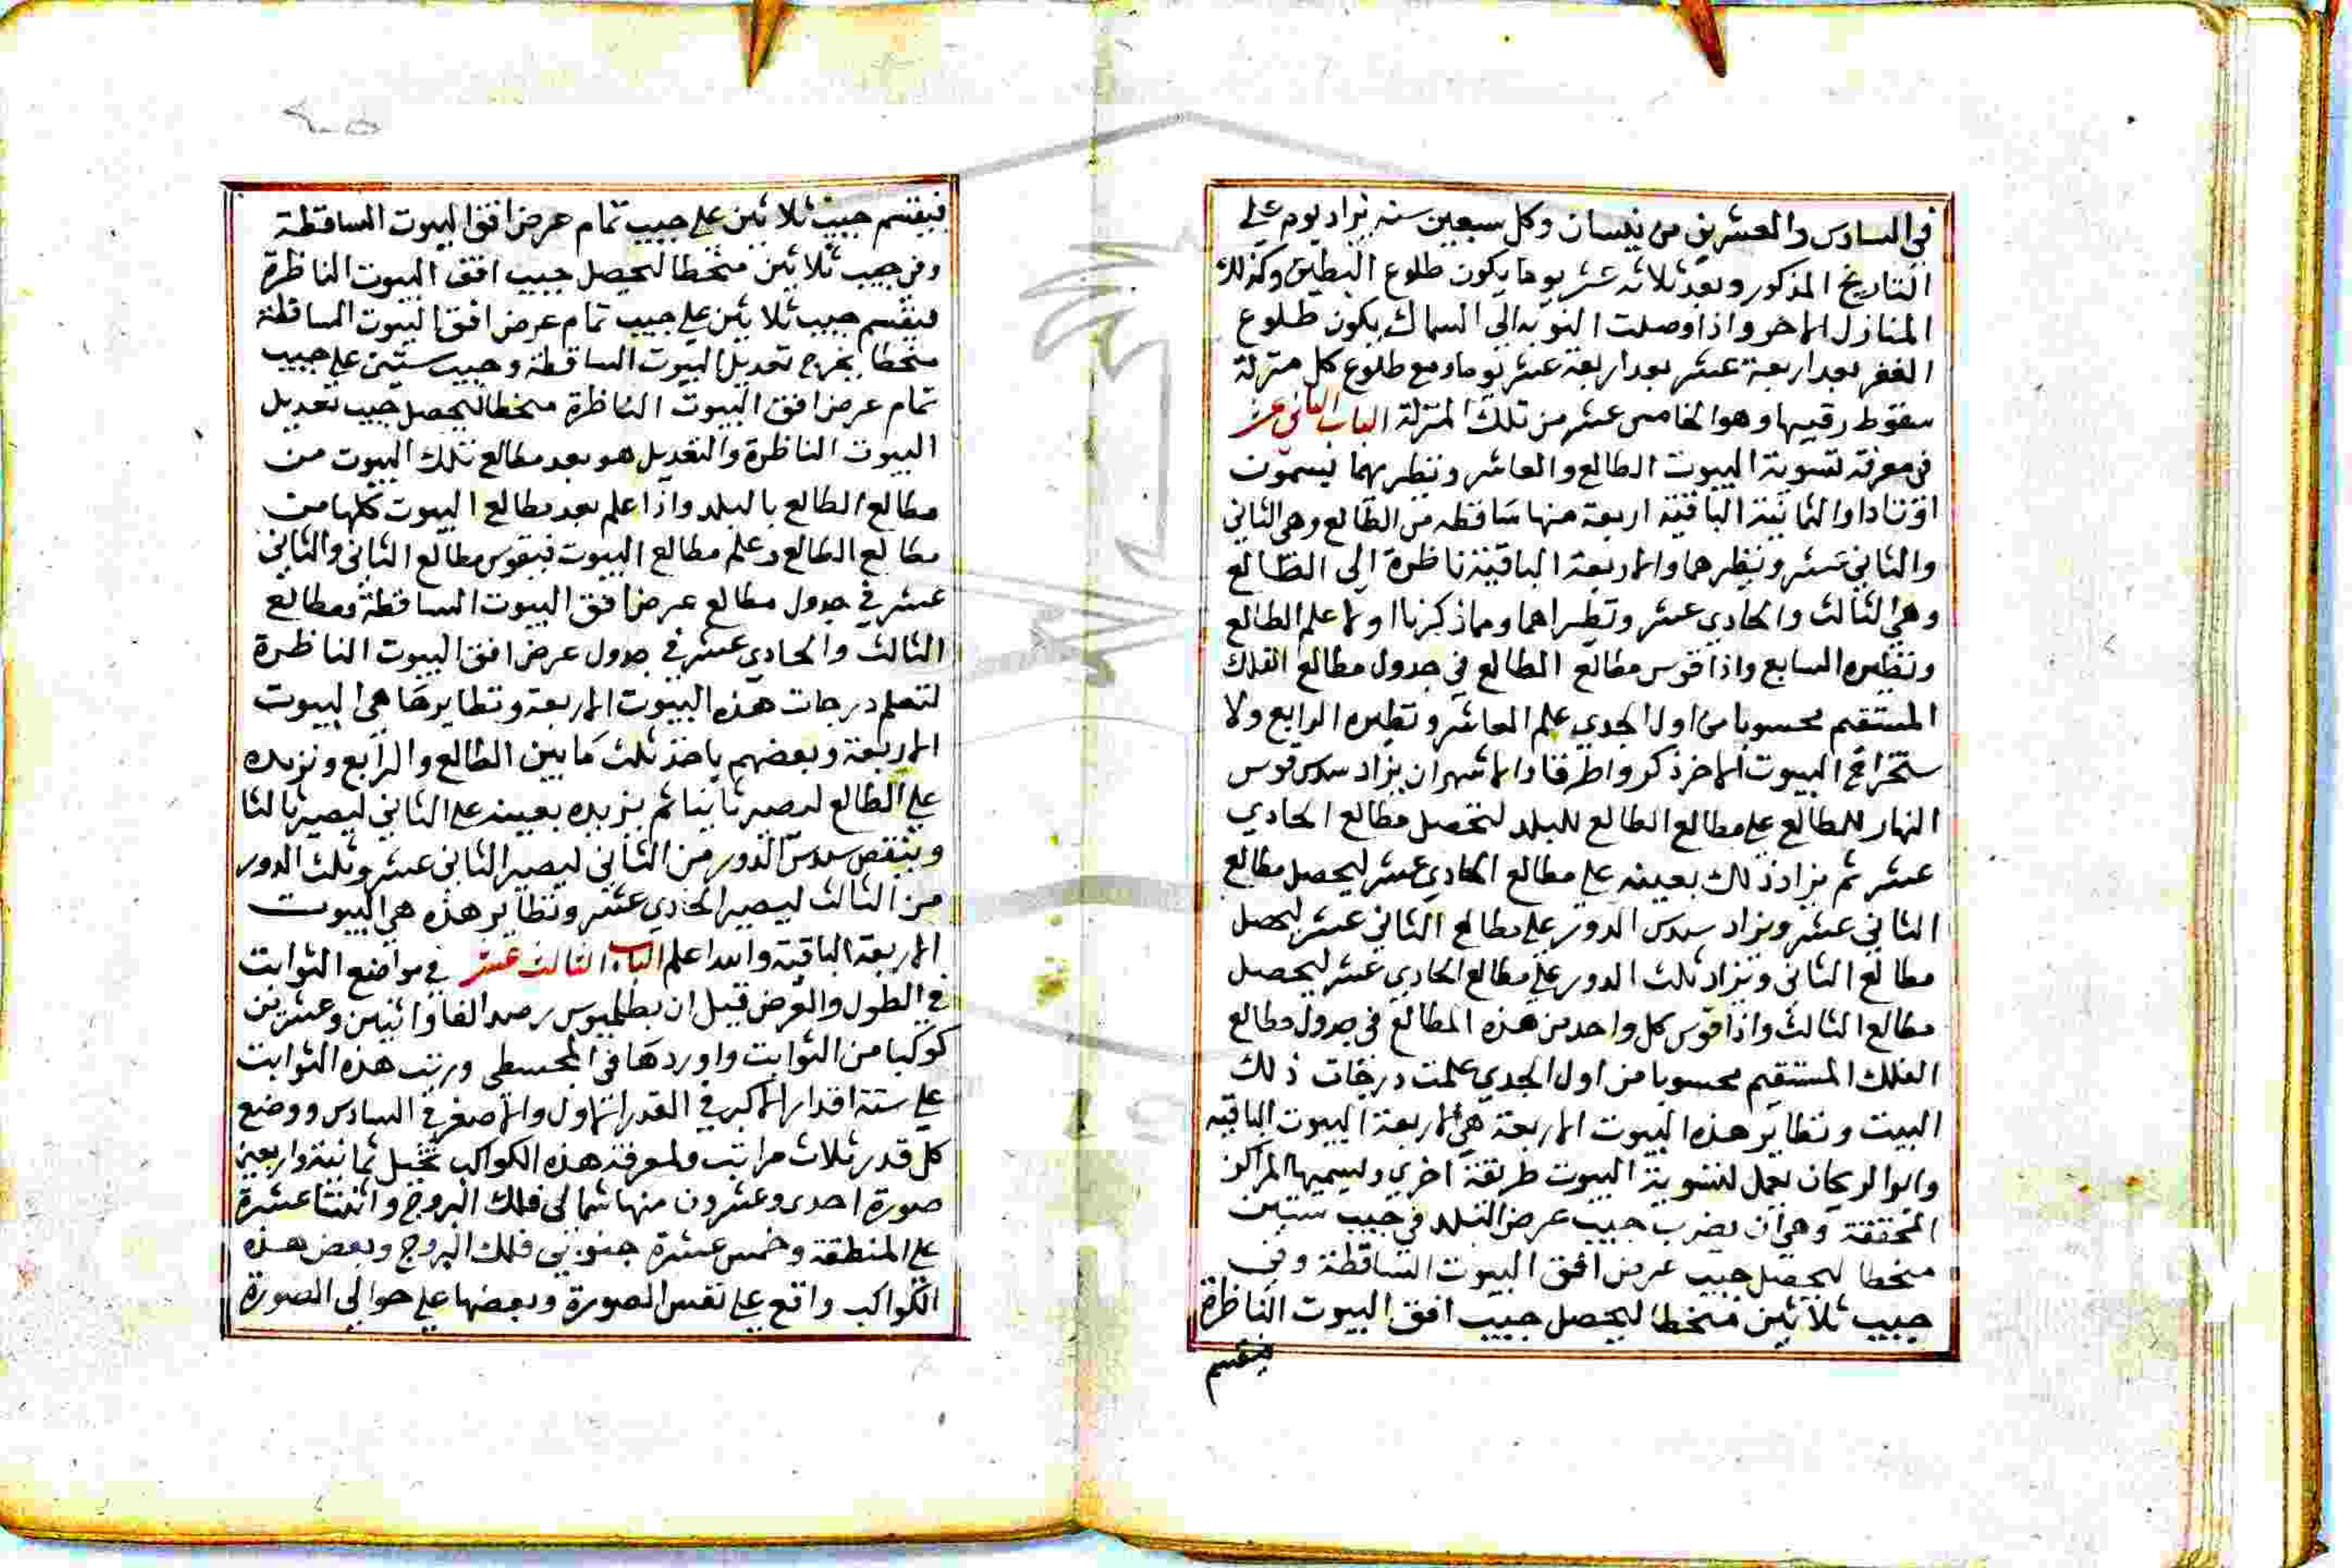 في السادس والعشرين من نيسان وكل سبعين سنه يزاد يوم علي
التاريخ المذكور وبعد ثلاثه عشر يوما يكون طلوع البطين وكذلك
المنازل الاخر واذا وصلت النوبه الي السماك يكون طلوع
الغفر بعد اربعة عشر بعد اربعة عشر يوما ومع طلوع كل منزلة
سقوط رقيبها وهو الخامس عشر من تلك المنزلة الباب الثاني عشر
في معرفة تسوية البيوت الطالع والعاشر ونظيريهما يسموت
اوتادا والثمانية الباقية اربعة منها ساقطه من الطالع وهي الثاني
والثاني عشر ونظيرهما والاربعة الباقية ناظرة الي الطالع
وهي الثالث والحادي عشر ونظيراهما ومما ذكرنا اولا علم الطالع
ونظيره السابع واذا قوس مطالع الطالع في جدول مطالع الفلك
المستقيم محسوبا من اول الجدي علم العاشر ونظيره الرابع ولا
ستخراج البيوت الاخر ذكروا طرقا والاشهر ان يزاد سدس قوس
النهار للطالع علي مطالع الطالع للبلد لتحصل مطالع الحادي
عشر ثم يزاد ذلك بعينه علي مطالع الحادي عشر ليحصل مطالع
الثاني عشر ويزاد سدس الدور علي مطالع الثاني عشر ليحصل
مطالع الثاني ويزاد ثلث الدور علي مطالع الحادي عشر ليحصل
مطالع الثالث واذا قوس كل واحد من هذه المطالع في جدول مطالع
الفلك المستقيم محسوبا من اول الجدي علمت درجات ذلك
البيت ونظاير هذه البيوت الاربعة هي الاربعة البيوت الباقيه
وابو الريحان يعمل لتسوية البيوت طريقة اخري ويسميها المراكز
المحققة وهي ان يضرب جيب عرض البلد في جيب ستين
منحطا ليحصل جيب عرض افق البيوت الساقطة وفي
جيب ثلاثين منحطا ليحصل جيب افق البيوت الناظرة
فيقسم
فيقسم جيب ثلاثين علي جيب تمام عرض افق البيوت الساقطة
وفي جيب ثلاثين منحطا ليحصل جيب افق البيوت الناظرة
فيقسم جيب ثلاثين علي جيب تمام عرض افق البيوت الساقطة
منحطا يخرج تعديل البيوت الساقطة وجيب ستين علي جيب
تمام عرض افق البيوت الناظرة منحطا ليحصل جيب تعديل
البيوت الناظرة والتعديل هو بعد مطالع تلك البيوت من
مطالع الطالع بالبلد واذا علم بعد مطالع البيوت كلها من
مطالع الطالع وعلم مطالع البيوت فيقوس مطالع الثاني والثاني
عشر في جدول مطالع عرض افق البيوت الساقطة ومطالع
الثالث والحادي عشر في جدول عرض افق البيوت الناظرة
لتعلم درجات هذه البيوت الاربعة ونظايرها هي البيوت
الاربعة وبعضهم ياخذ ثلث ما بين الطالع والرابع ونزيده
علي الطالع ليصير ثانيا ثم يزيده بعينه علي الثاني ليصير ثالثا
وينقص سدس الدور من الثاني ليصير الثاني عشر وثلث الدور
من الثالث ليصير الحادي عشر ونظاير هذه هي البيوت
الاربعة الباقية والله اعلم الباب الثالث عشر في مواضع الثوابت
في الطول والعرض قيل ان بطلميوس رصد الفا واثنين وعشرين
كوكبا من الثوابت واوردها في المجسطي ورتب هذه الثوابت
علي ستة اقدار الاكبر في القدر الاول والاصغر في السادس ووضع
كل قدر ثلاث مراتب ولمعرفة هذه الكواكب تخيل ثمانية واربعين
صورة احدي وعشرون منها شمالي فلك البروج واثنتا عشرة
علي المنطقة وخمس عشرة جنوبي فلك البروج وبعض هذه
الكواكب واقع علي نفس الصورة وبعضها علي حوالي الصورة